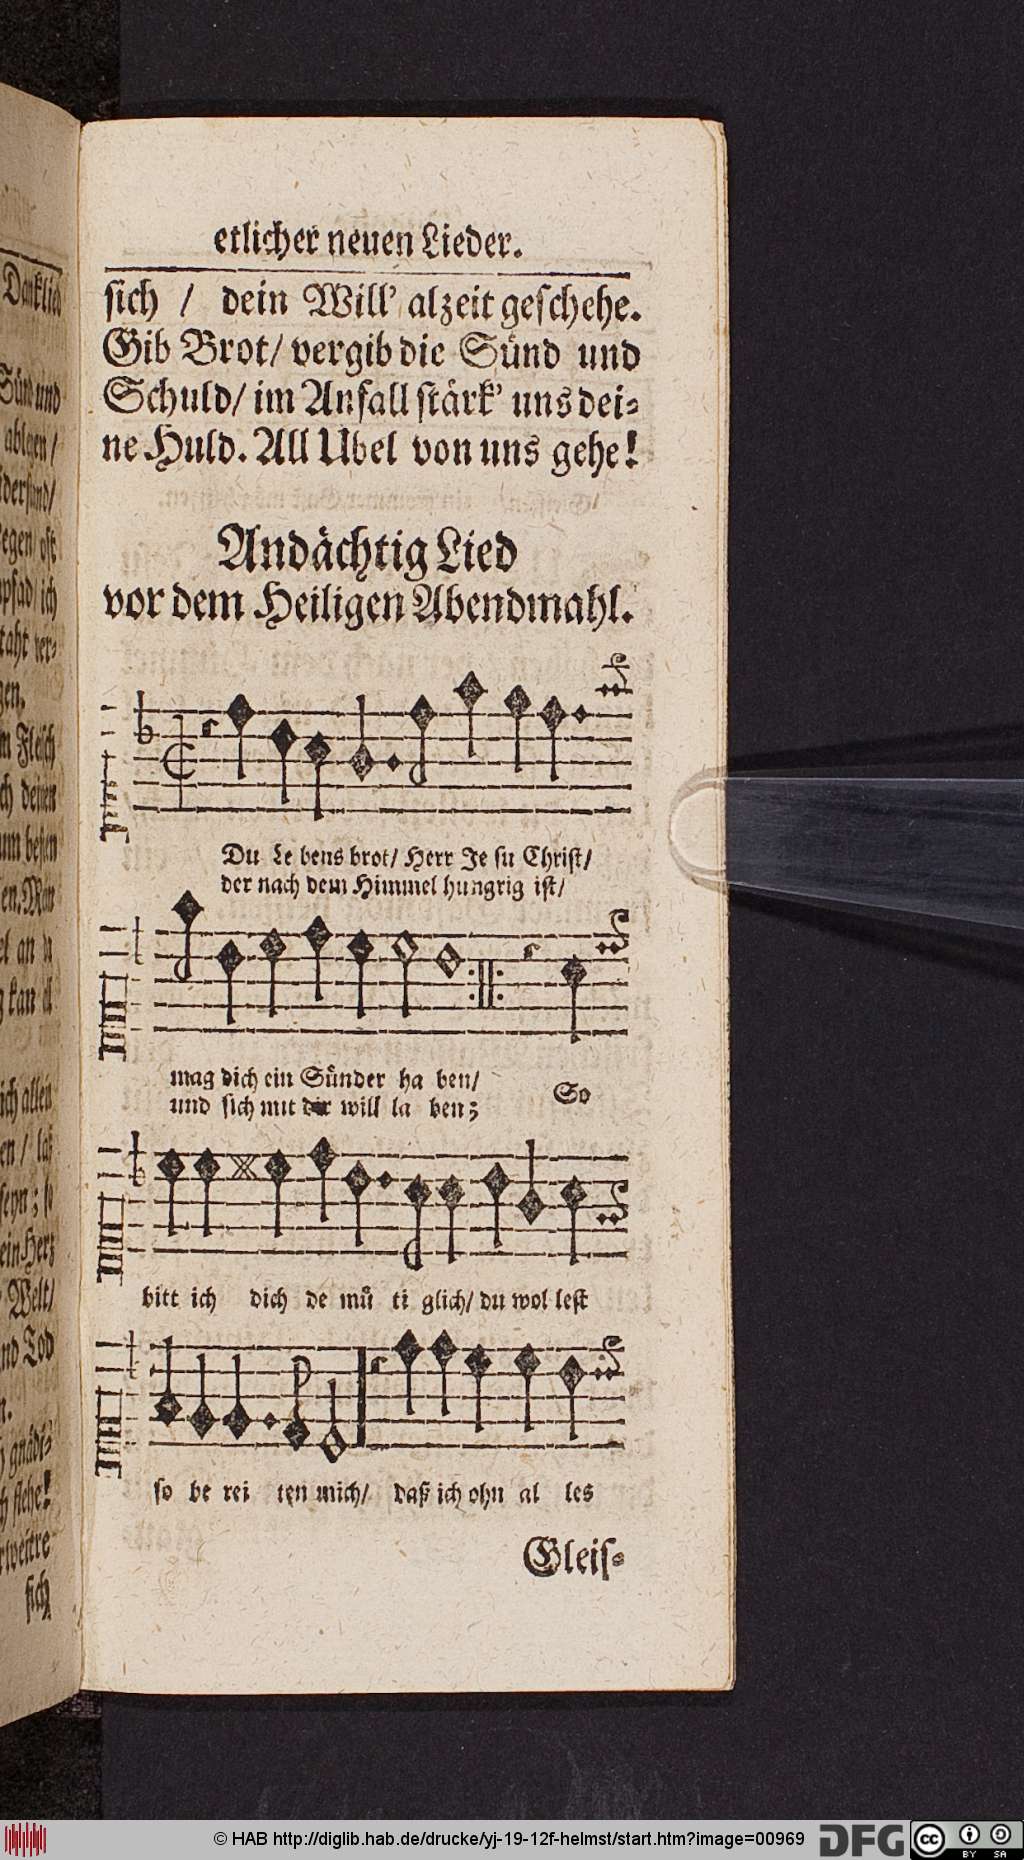 etlicher neuen Lieder.
sich / dein Will' alzeit geschehe.
Gib Brot/ vergib die Sünd und
Schuld/ im Anfall stärk' uns dei-
ne Huld. All Ubel von uns gehe!
Andächtig Lied
vor dem Heiligen Abendmahl.
Du Le bens brot/ Herr Je su Christ/
der nach dem Himmel hungrig ist/
mag dich ein Sünder ha ben/
und sich mit dir will la ben;
So
bitt ich dich de mü ti glich/ du wol lest
so be rei ten mich/ daß ich ohn al les
Gleis-
Danklied
Sünd und
ablegen/
Fleisch
ich allen
Welt/
und Tod
sich
© HAB http://diglib.hab.de/drucke/yj-19-12f-helmst/start.htm?image=00969
DFG
cc
BY SA